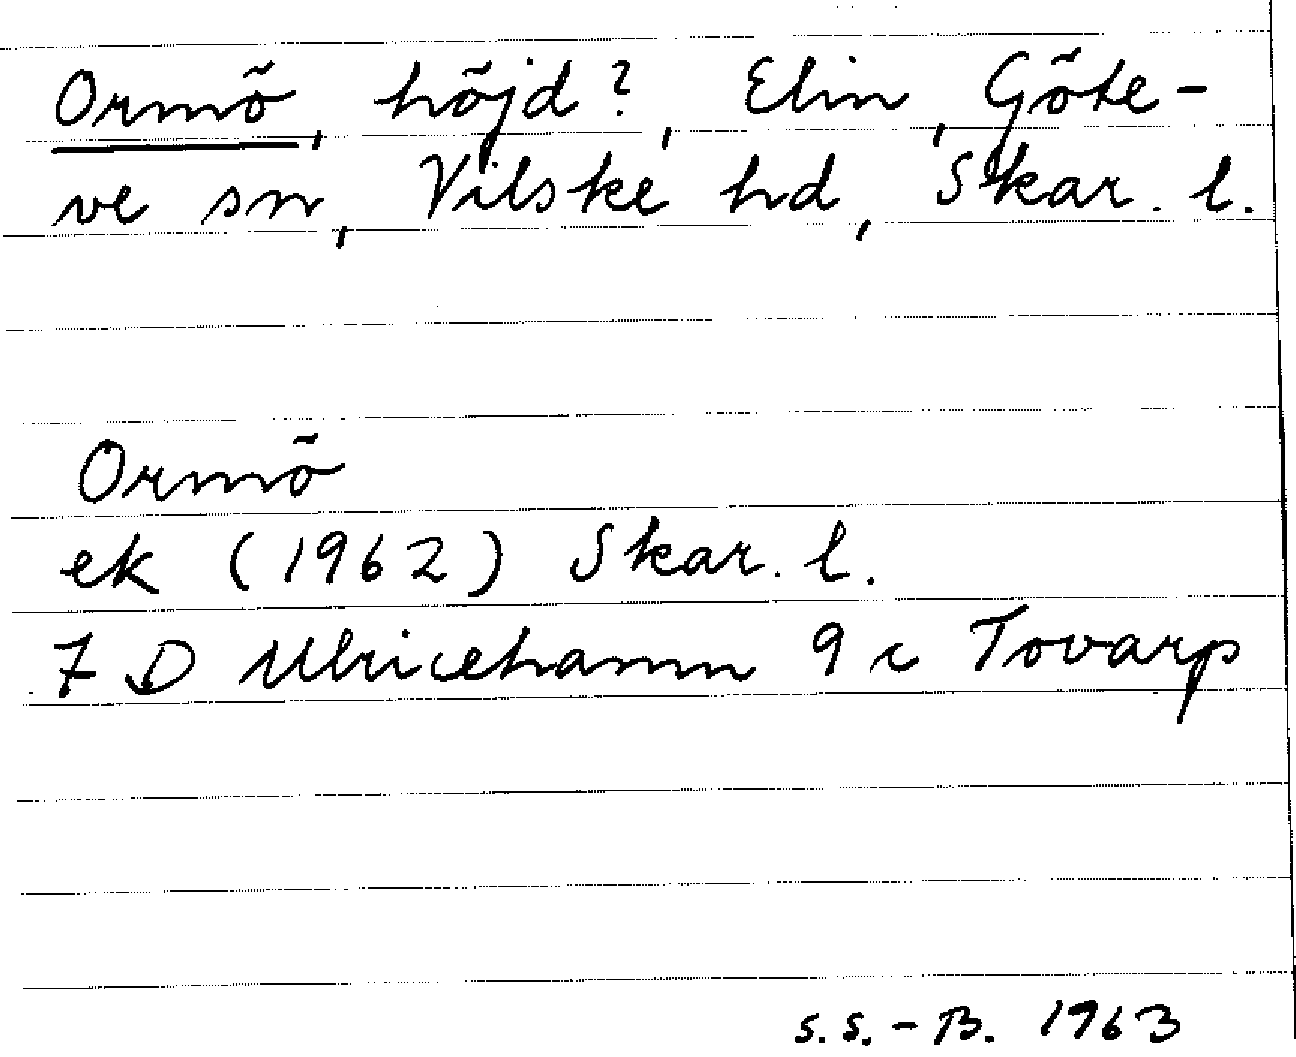 Ormö, höjd?, Elin, Göte-
ve sn, Vilske hd, Skar. l.
Ormö
ek (1962) Skar. l.
7 D Ulricehamn 9 c Tovarp
S.S.-B. 1963